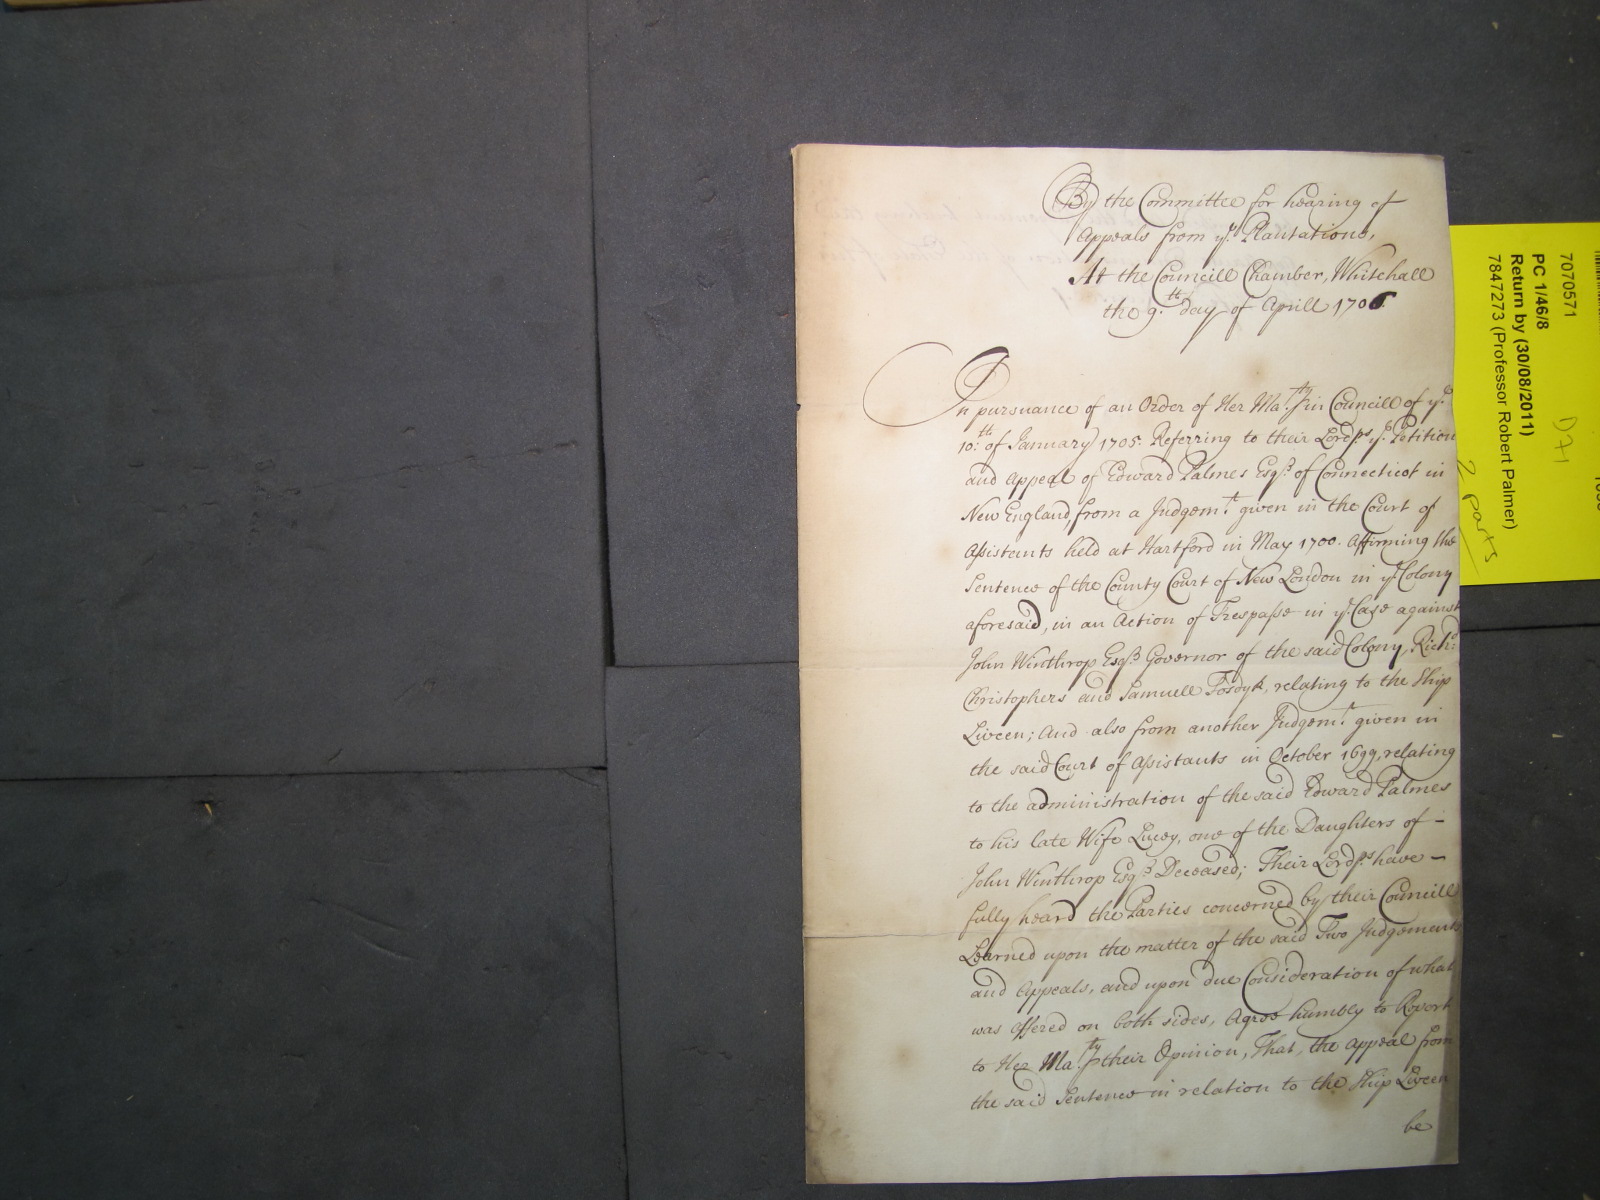 By the Committee for hearing of
Appeals from ye. Plantations,
At the Councill Chamber, Whitehall
the 9th. day of Aprill 1706.
In pursuance of an Order of Her Ma.ty in Councill of ye.
10th: of January 1705. Referring to their Lordps ye. Petition
and Appeal of Edward Palmes Esqr. of Connecticot in
New England, from a Judgemt. given in the Court of
Assistants held at Hartford in May 1700. Affirming the
Sentence of the County Court of New London in ye. Colony
aforesaid, in an Action of Trespasse in ye. Case against
John Winthrop Esqr. Governor of the said Colony, Richd:
Christophers and Samuell Fosdyk, relating to the Ship
Liveen; And also from another Judgemt. given in
the said Court of Assistants in October 1699, relating
to the administration of the said Edward Palmes
to his late Wife Lucy, one of the Daughters of -
John Winthrop Esqr. Deceased; Their Lordps. have -
fully heard the Parties concerned by their Councill
Learned upon the matter of the said Two Judgements
and Appeals, and upon due Consideration of what
was offered on both sides, Agree humbly to Report
to Her Ma.ty their Opinion, That, the Appeal from
the said Sentence in relation to the Ship Liveen
be
7070571
PC 1/46/8
Return by (30/08/2011)
7847273 (Professor Robert Palmer)
D71
2 parts